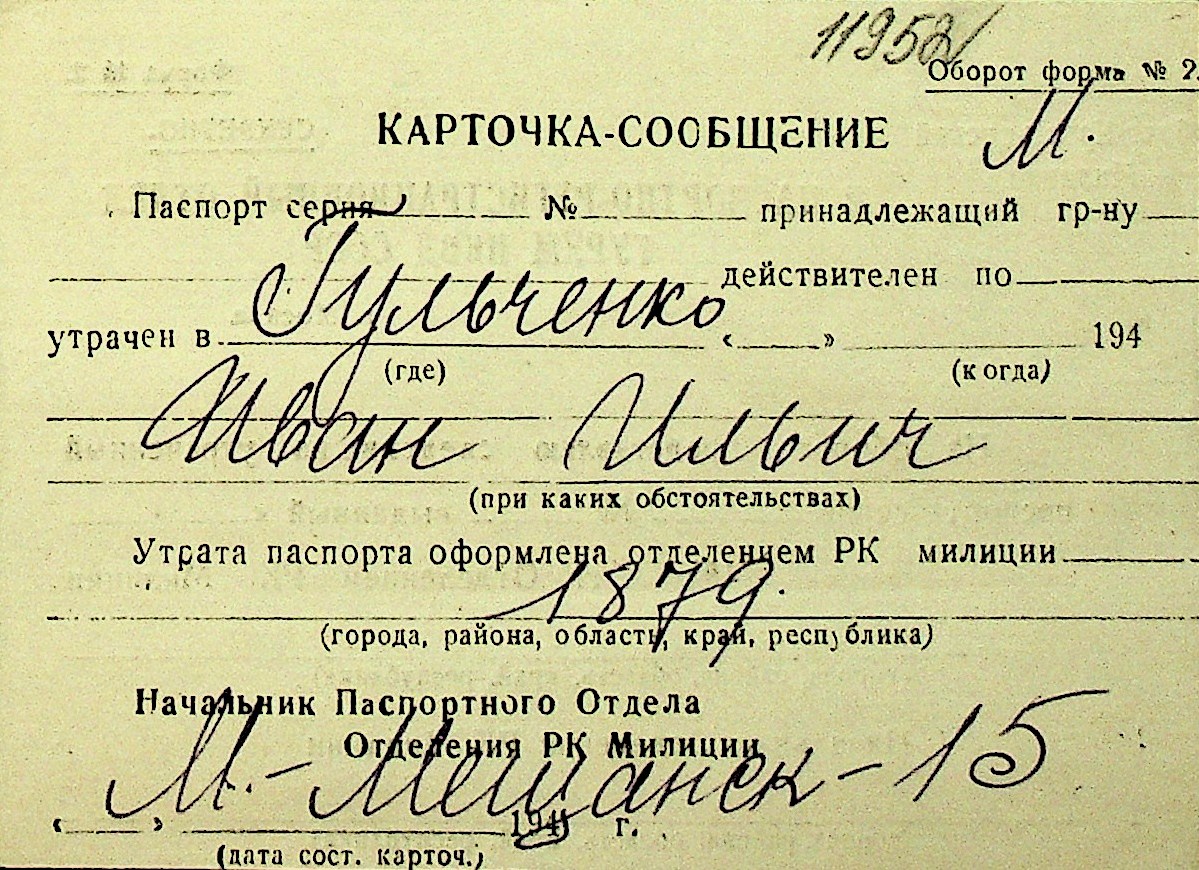 11952
Оборот форма № 2.
КАРТОЧКА-СООБЩЕНИЕ
М.
Паспорт серия № принадлежащий гр-ну
действителен по
Гульченко
утрачен в « » 194
(где) (когда)
Иван Ильич
(при каких обстоятельствах)
Утрата паспорта оформлена отделением РК милиции
1879.
(города, района, область, край, республика)
Начальник Паспортного Отдела
Отделения РК Милиции
М.-Мещанск-15
« » 194 г.
(дата сост. карточ.)